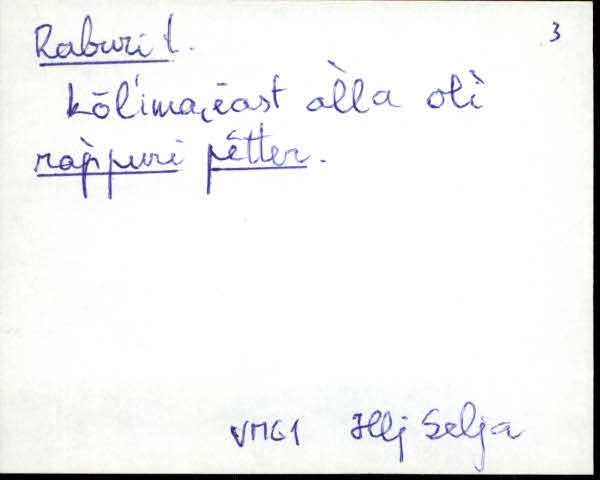 Raburi t. 3
kõl'imaᴉeast àlla olì
ràppuri pêtter.
VMG1 Hlj Selja